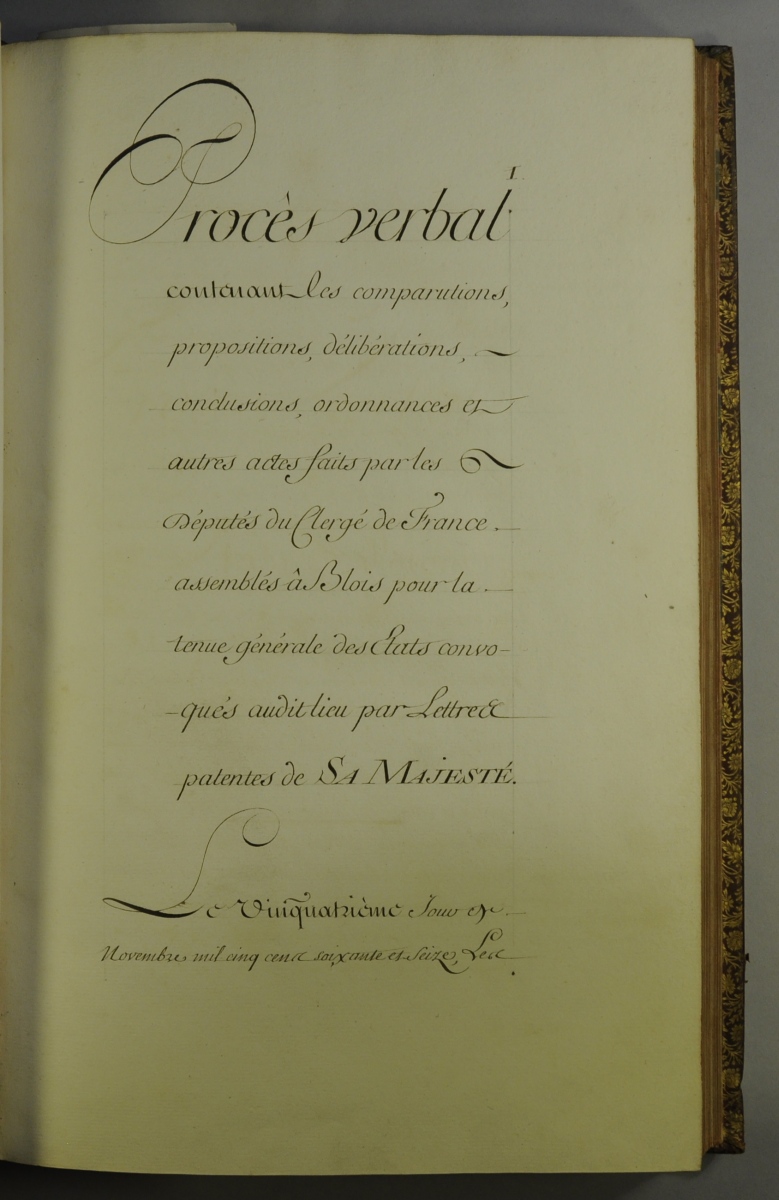 1
Procès verbal
contenant les comparutions,
propositions, délibérations,
conclusions, ordonnances et
autres actes faits par les
Députés du Clergé de France
assemblés à Blois pour la
tenue générale des Etats convo-
-qués audit lieu par Lettres
patentes de SA MAJESTÉ.
Le Vinquatrième Jour de
Novembre mil cinq cens soixante et Seize, Les